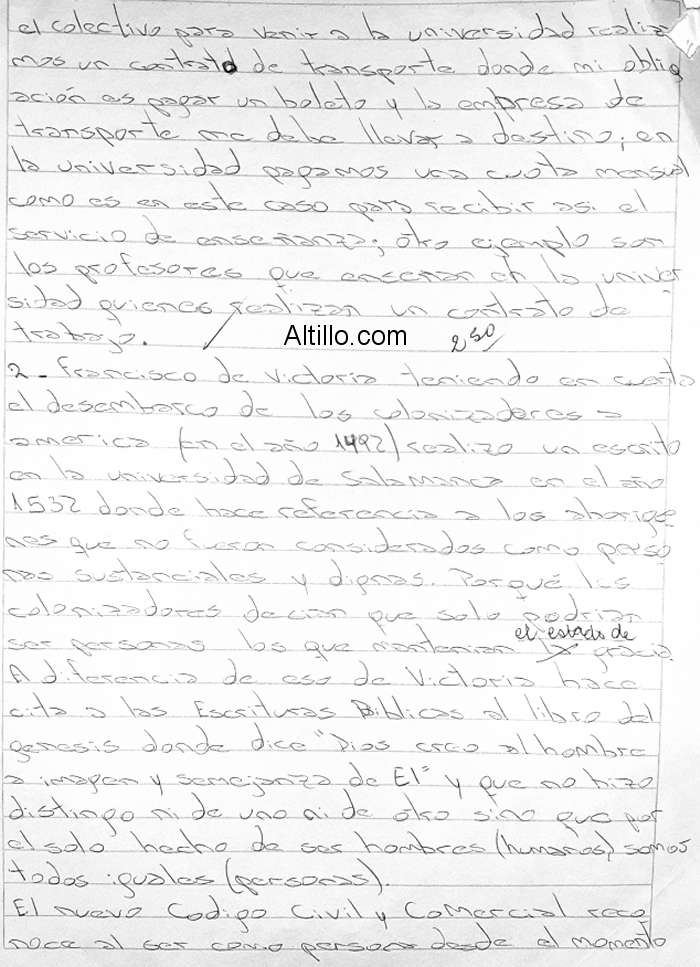 el colectivo para venir a la universidad realiza
mos un contrato de transporte donde mi oblig
ación es pagar un boleto y la empresa de
transporte me debe llevar a destino; en
la universidad pagamos una cuota mensual
como es en este caso para recibir asi el
servicio de enseñanza; otro ejemplo son
los profesores que enseñan en la univer
sidad quienes realizan un contrato de
trabajo.
Altillo.com
250
2 - Francisco de Victoria teniendo en cuenta
el desembarco de los colonizadores a
america (en el año 1492) realizo un escrito
en la universidad de Salamanca en el año
1532 donde hace referencia a los aborige
nes que no fueron considerados como perso
nas sustanciales y dignas. Porqué los
colonizadores decian que solo podrian
ser personas los que mantenian la gracia.
el estado de
A diferencia de eso de Victoria hace
cita a las Escrituras Biblicas al libro del
genesis donde dice "Dios creo al hombre
a imagen y semejanza de El" y que no hizo
distingo ni de uno ni de otro sino que por
el solo hecho de ser hombres (humanos) somos
todos iguales (personas).
El nuevo Codigo Civil y Comercial reco
noce al ser como persona desde el momento